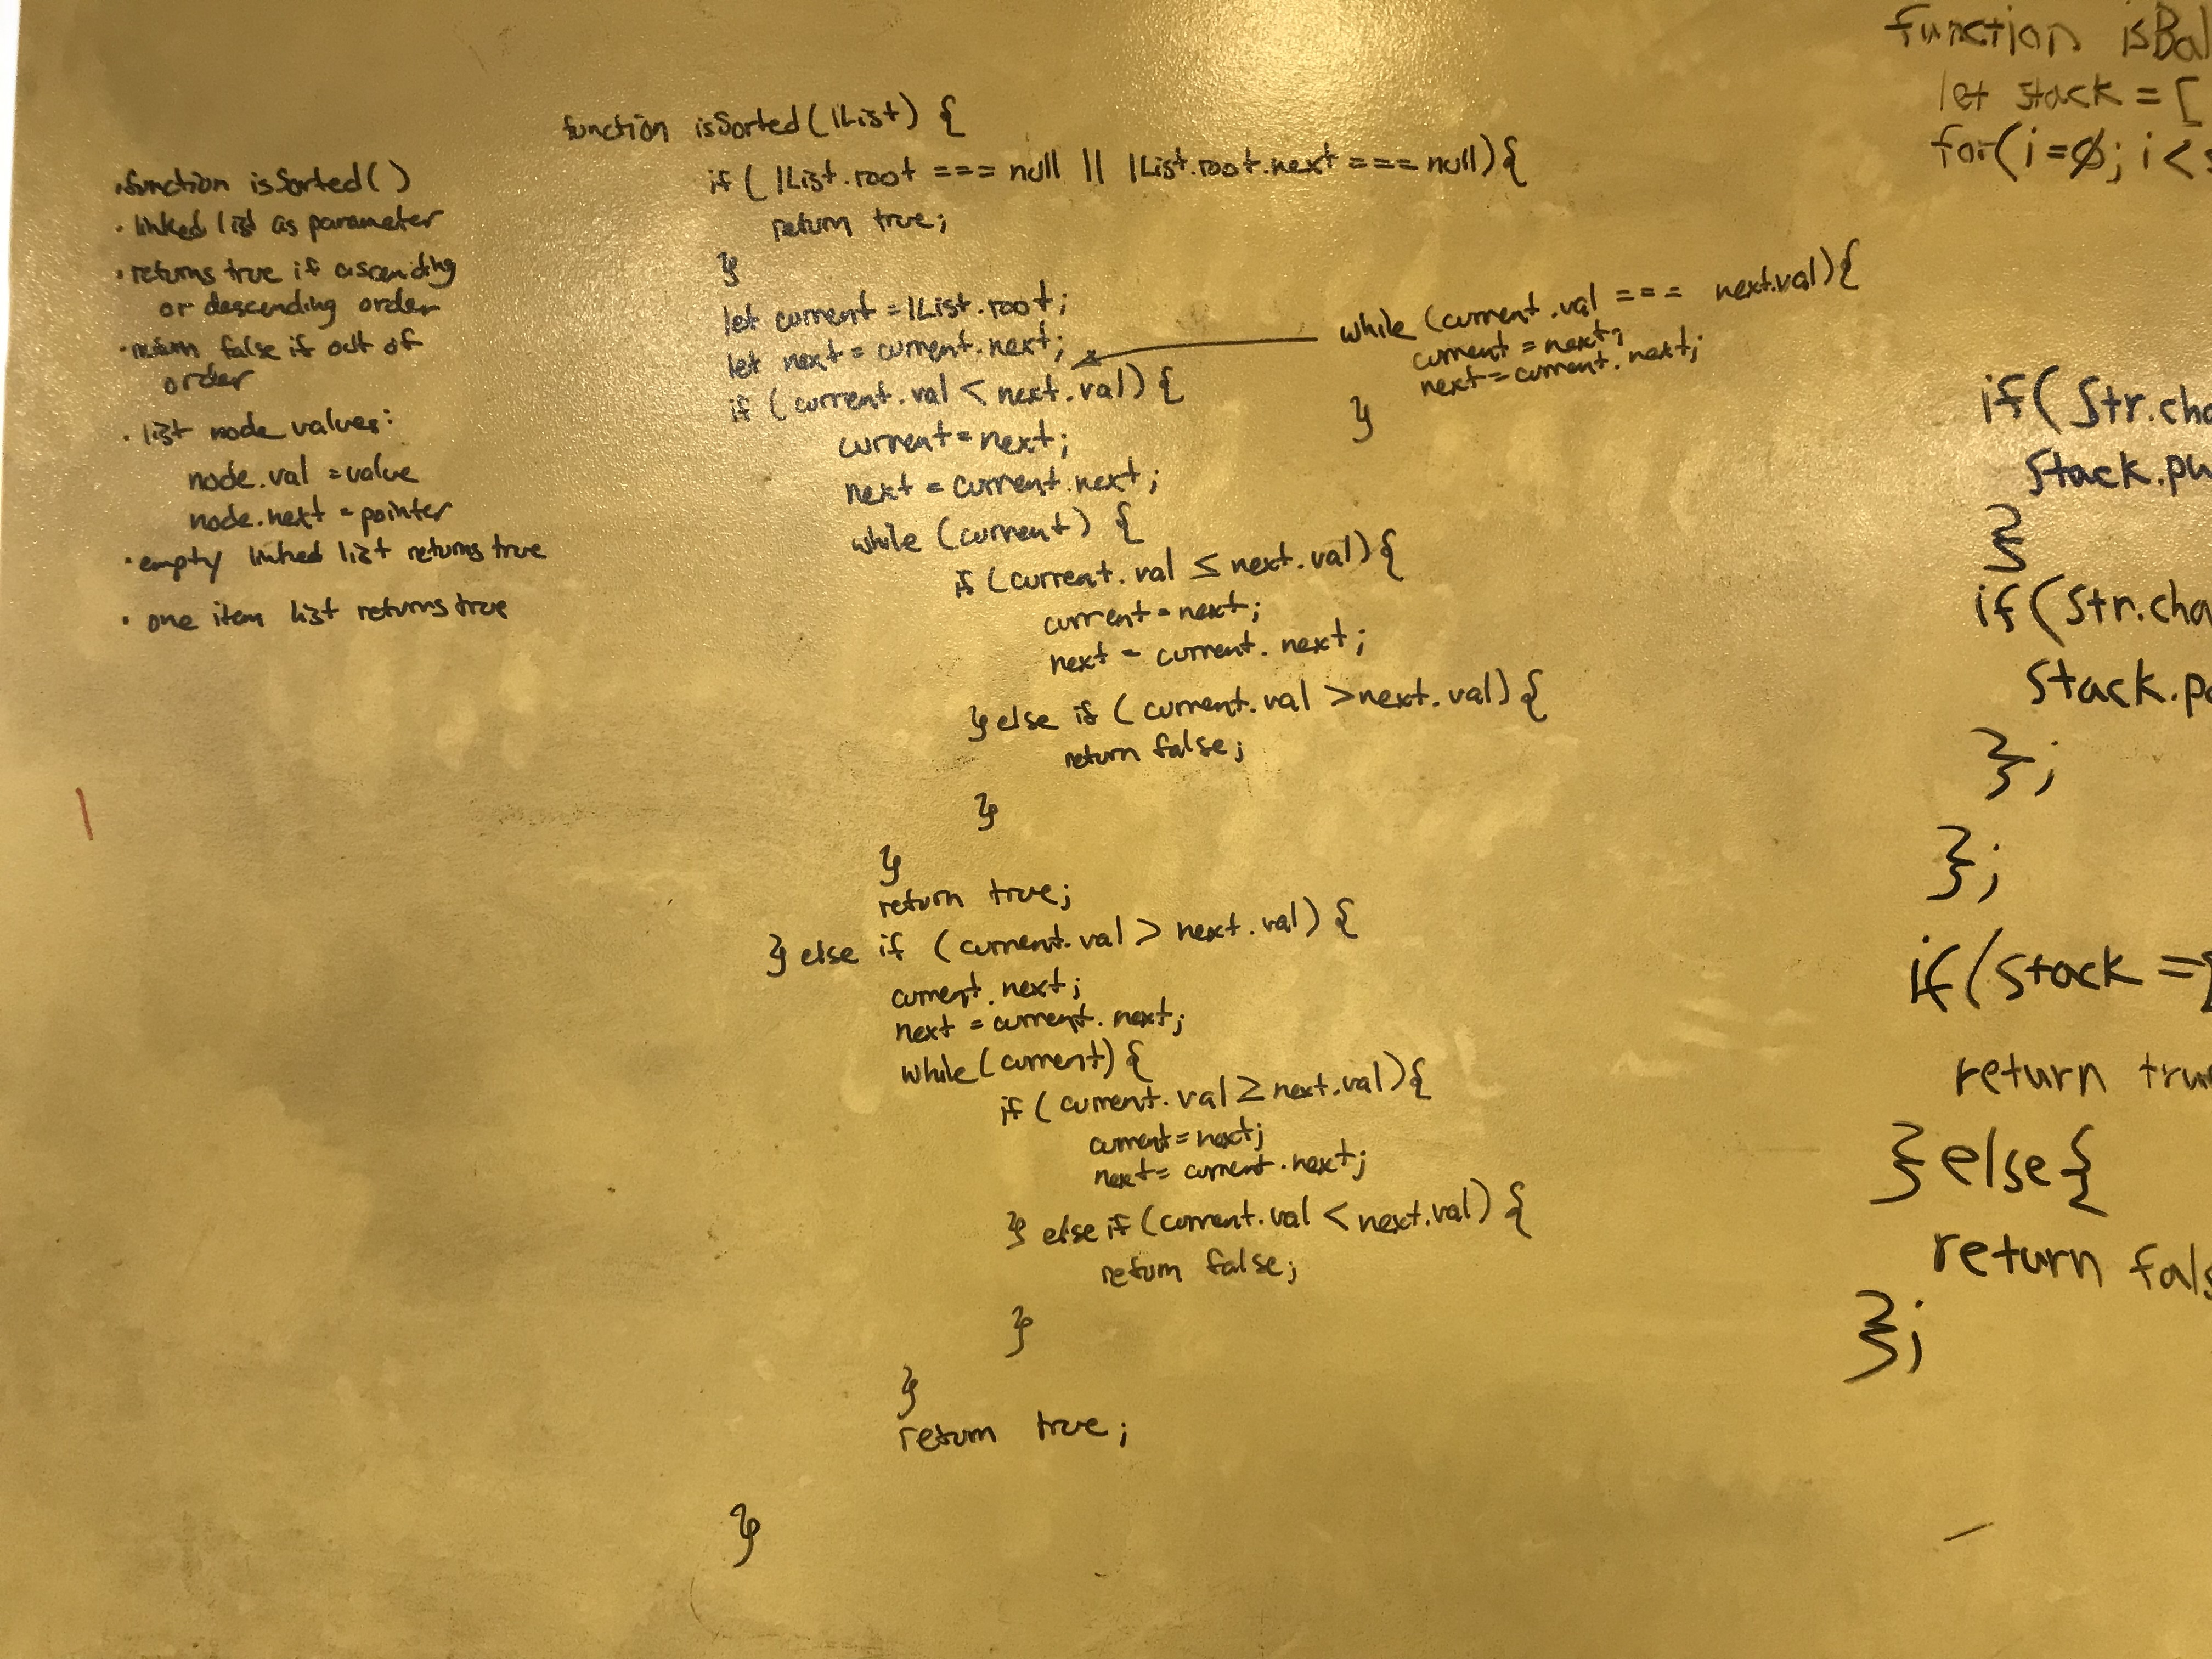 • function isSorted()
• linked list as parameter
• returns true if ascending
or descending order
• return false if out of
order
• list node values:
node.val = value
node.next = pointer
• empty linked list returns true
• one item list returns true
function isSorted(lList) {
if ( lList.root === null || lList.root.next === null){
return true;
}
let current = lList.root;
let next = current.next;
if (current.val < next.val) {
current = next;
next = current.next;
while (current) {
if (current.val ≤ next.val) {
current = next;
next = current.next;
} else if (current.val > next.val) {
return false;
}
}
return true;
} else if (current.val > next.val) {
current.next;
next = current.next;
while (current) {
if (current.val ≥ next.val) {
current = next;
next = current.next;
} else if (current.val < next.val) {
return false;
}
}
return true;
}
while (current.val === next.val) {
current = next;
next = current.next;
}
function isBal
let stack = [
for(i=0; i<s
if(Str.cha
Stack.pu
}
if(Str.cha
Stack.po
};
};
if(stack =
return true
}else{
return fals
};